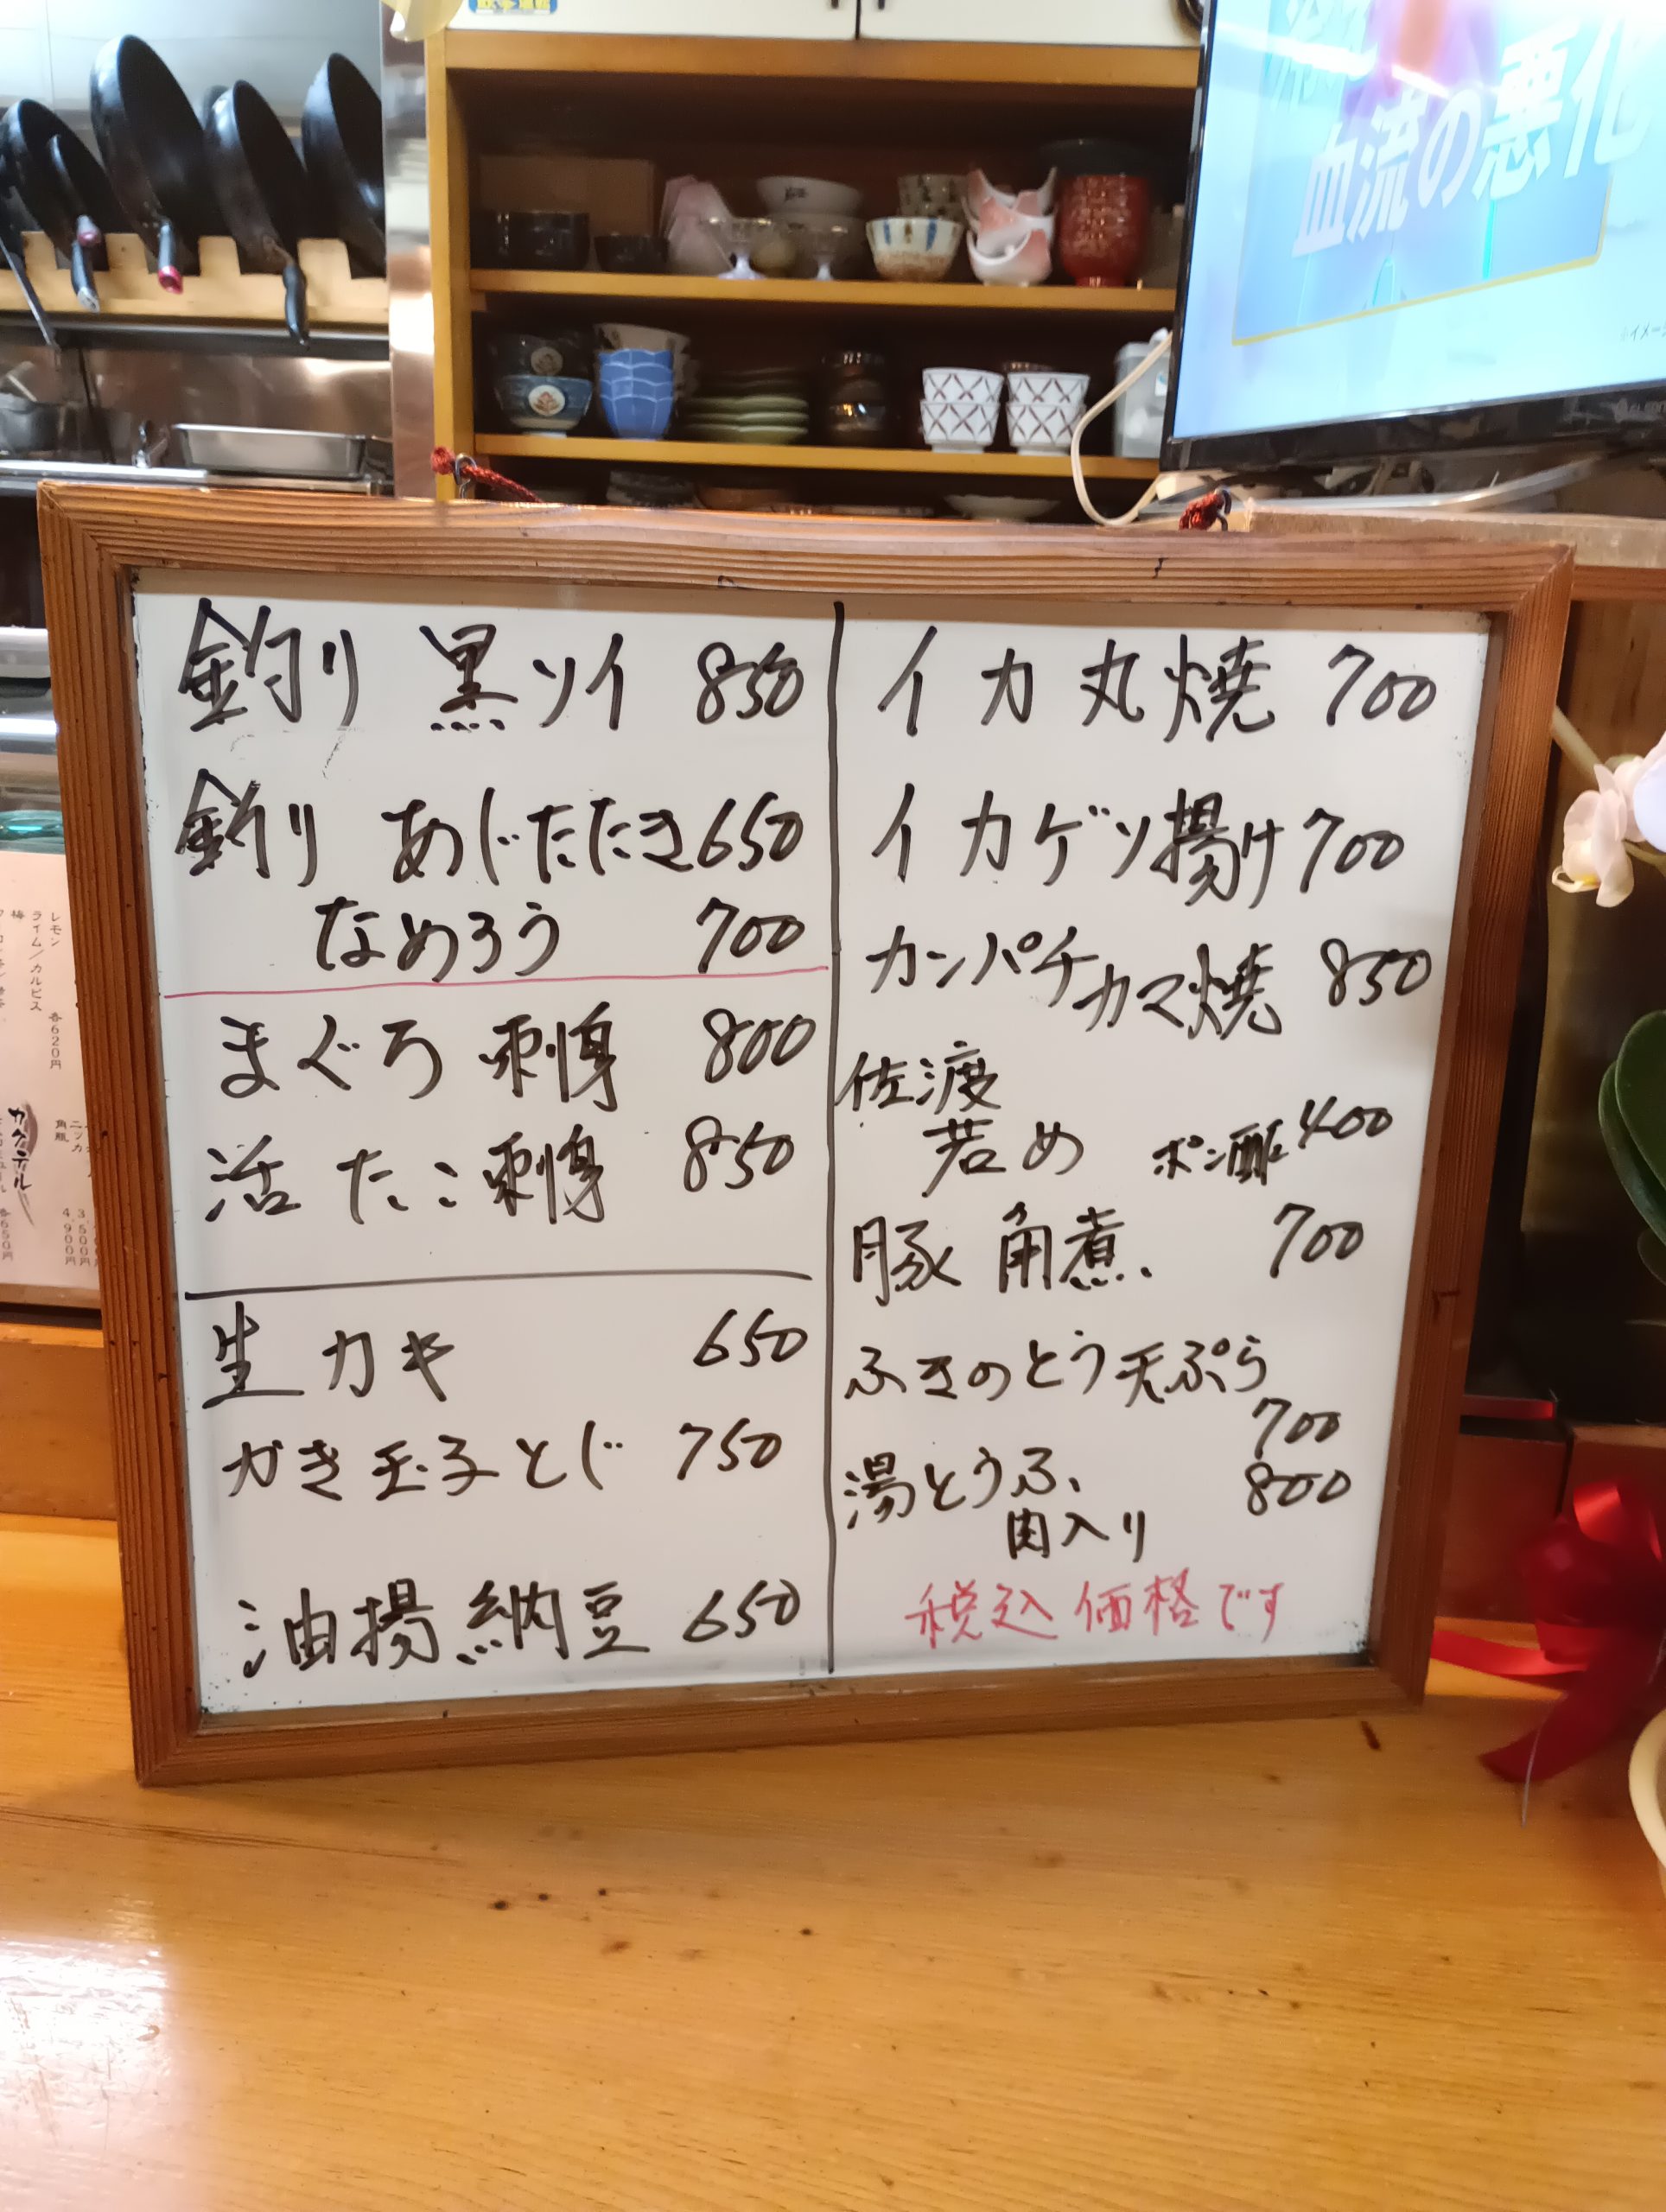 血流の悪化
釣り 黒ソイ 850
釣り あじたたき 650
なめろう 700
まぐろ 刺身 800
活 たこ 刺身 850
生 カキ 650
かき玉子とじ 750
油揚納豆 650
イカ丸焼 700
イカゲソ揚け 700
カンパチカマ焼 850
佐渡
若め ポン酢 400
豚 角煮 700
ふきのとう天ぷら
700
湯とうふ 800
肉入り
税込価格です
レモン
ライム/カルピス
梅
各620円
カクテル
各650円
角瓶
4,900円